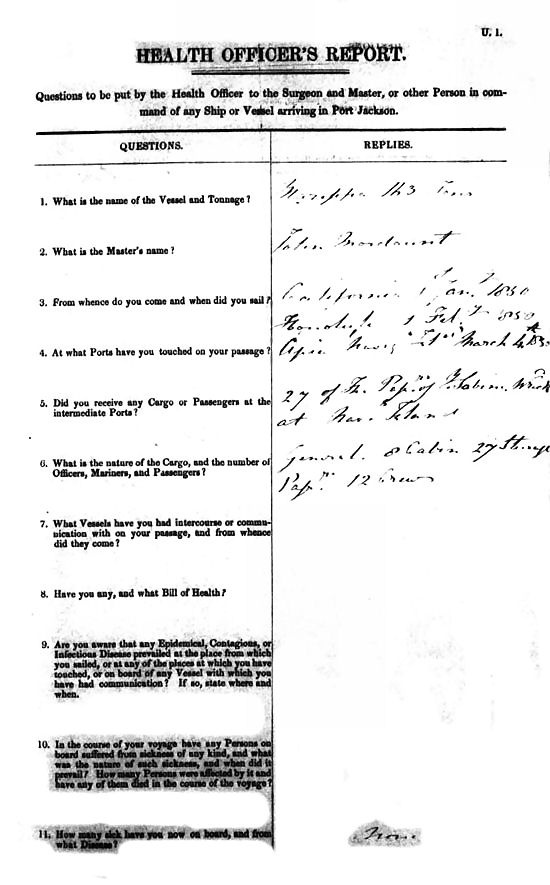 U. 1.
HEALTH OFFICER'S REPORT.
Questions to be put by the Health Officer to the Surgeon and Master, or other Person in com-
mand of any Ship or Vessel arriving in Port Jackson.
QUESTIONS.
REPLIES.
1. What is the name of the Vessel and Tonnage?
163 Tons
2. What is the Master's name?
John Mordaunt
3. From whence do you come and when did you sail?
California 1 Jany 1850
Honolulu 1 Feby 1850
4. At what Ports have you touched on your passage?
Apia March 4th 1850
5. Did you receive any Cargo or Passengers at the
intermediate Ports?
27 of the Passrs of
at Island
6. What is the nature of the Cargo, and the number of
Officers, Mariners, and Passengers?
General 8 Cabin 27 Steerage
Passrs 12 Crew
7. What Vessels have you had intercourse or commu-
nication with on your passage, and from whence
did they come?
8. Have you any, and what Bill of Health?
9. Are you aware that any Epidemical, Contagious, or
Infectious Disease prevailed at the place from which
you sailed, or at any of the places at which you have
touched, or on board of any Vessel with which you
have had communication? If so, state where and
when.
10. In the course of your voyage have any Persons on
board suffered from sickness of any kind, and what
was the nature of such sickness, and when did it
prevail? How many Persons were affected by it and
have any of them died in the course of the voyage?
11. How many sick have you now on board, and from
what Disease?
None